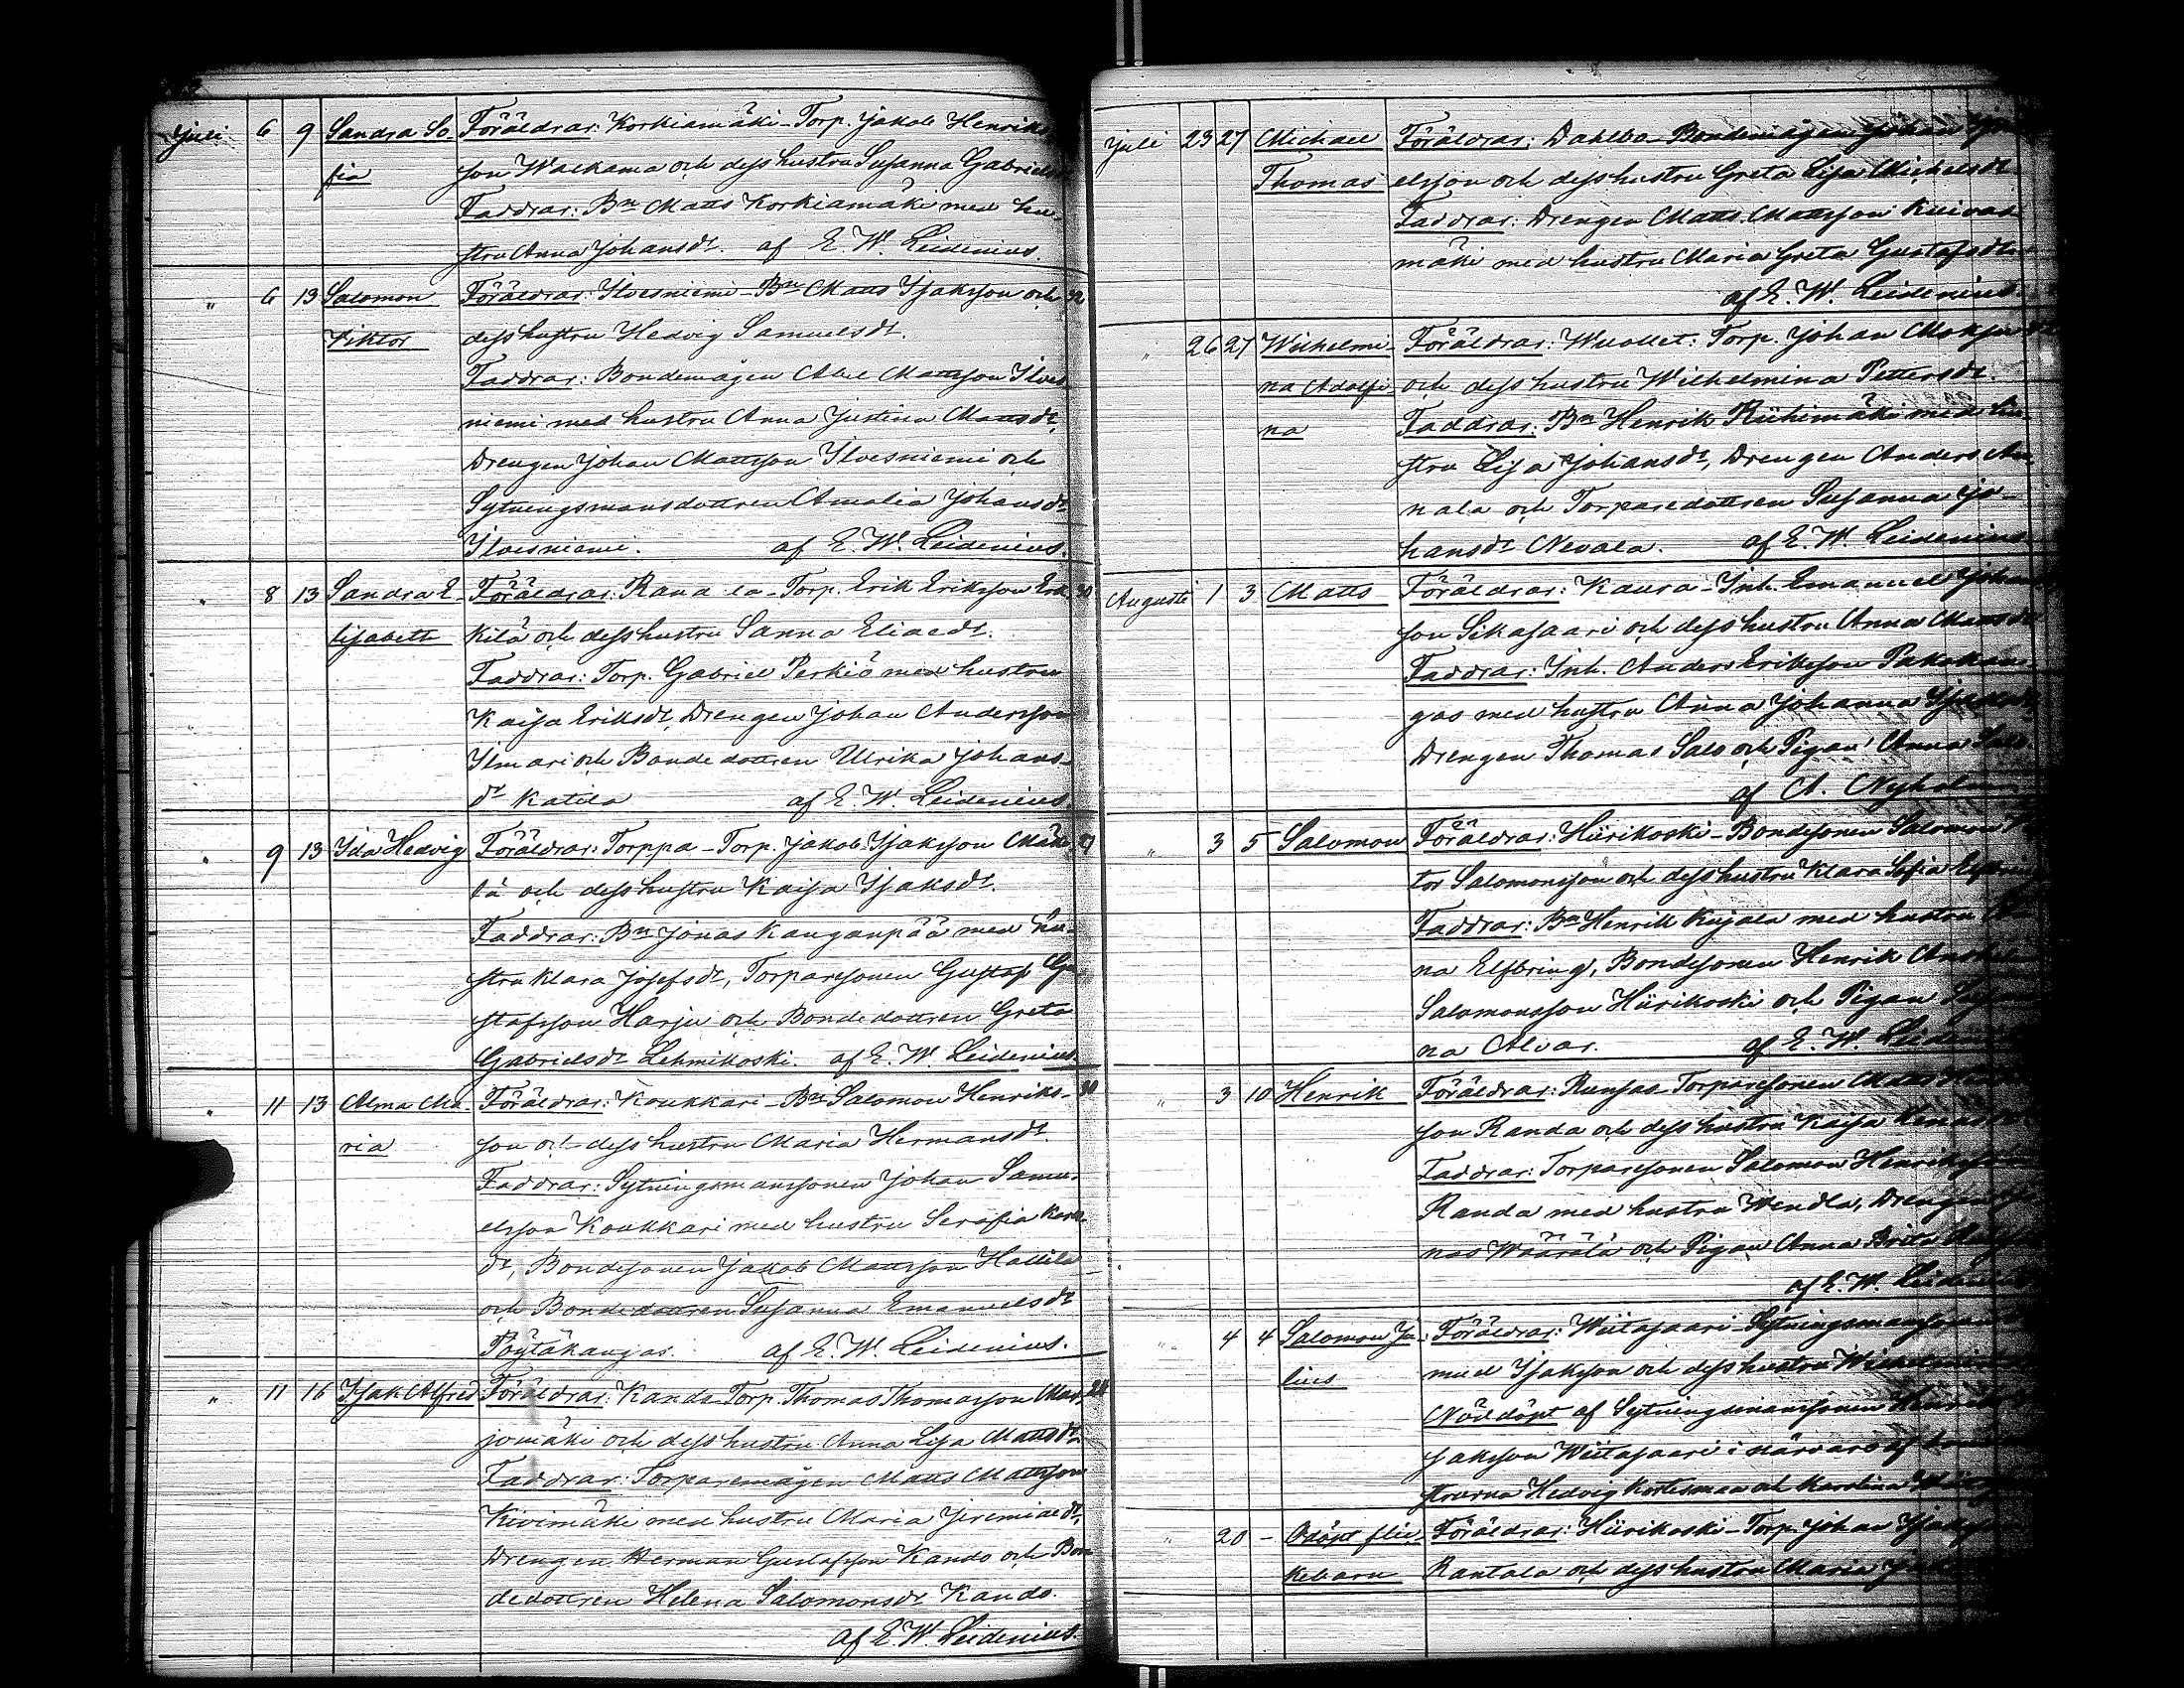 Juli 6 9 Sandra So- Föräldrar: Korkiamäki-Torp. Jakob Henriks-
fia son Walkama och dess hustru Susanna Gabrielsdr
Faddrar: Bn Matts Korkiamäki med hu-
stru Anna Johansdr. af E. W. Leidenius.
" 6 13 Salomon Föräldrar: Ilvesniemi-Bn Matts Isaksson och 32
Viktor dess hustru Hedvig Samuelsdr.
Faddrar: Bondemågen Abel Mattsson Ilves-
niemi med hustru Anna Justina Mattsdr,
Drengen Johan Mattsson Ilvesniemi och
Sytningsmansdottren Amalia Johansdr
Ilvesniemi. af E. W. Leidenius.
" 8 13 Sandra E- Föräldrar: Torp. Erik Eriksson 30
lisabeth kilä och dess hustru Sanna Eliaedr.
Faddrar: Torp. Gabriel Perkiö med hustru
Kaisa Eriksdr, Drengen Johan Andersson
Ilmari och Bondedottren Ulrika Johans-
dr Katila af E. W. Leidenius.
" 9 13 Ida Hedvig Föräldrar: Torppa-Torp. Jakob Isaksson Mäki-
lä och dess hustru Kaisa Isaksdr.
Faddrar: Bn Jonas Kanganpää med hu-
stru Klara Josefsdr, Torparesonen Gustaf Gu-
stafsson Harju och Bondedottren Greta
Gabrielsdr Lehmikoski. af E. W. Leidenius.
" 11 13 Alma Ma- Föräldrar: Koukkari-Bn Salomon Henriks- 30
ria son och dess hustru Maria Hermansdr.
Faddrar: Sytningsmanssonen Johan Samu-
elsson Koukkari med hustru Serafia Karls-
dr, Bondesonen Jakob Mattsson Hallila
och Bondedottren Susanna Emanuelsdr
Pöytäkangas. af E. W. Leidenius.
" 11 16 Isak Alfred Föräldrar: Kando-Torp. Thomas Thomasson Mar-
jomäki och dess hustru Anna Lisa Mattsdr.
Faddrar: Torparemågen Matts Mattsson
Kivimäki med hustru Maria Jeremiaedr,
Drengen Herman Gustafsson Kando och Bon-
dedottren Helena Salomonsdr Kando.
af E. W. Leidenius.
Juli 23 27 Michael Föräldrar: Dahlbo-Bondemågen Johan
Thomas elsson och dess hustru Greta Lisa Michelsdr
Faddrar: Drengen Matts Mattsson Kuivas-
mäki med hustru Maria Greta Gustafsdr
af E. W. Leidenius.
" 26 27 Wilhelmi- Föräldrar: Wuollet: Torp. Johan
na Adolfi- och dess hustru Wilhelmina Pettersdr.
na Faddrar: Bn Henrik Riihimäki med hu-
stru Lisa Johansdr, Drengen Anders An-
nala och Torparedottren Susanna Jo-
hansdr Nevala. af E. W. Leidenius.
Augusti 1 3 Matts Föräldrar: Kaura-Inh. Emanuel Johans-
son Sikasaari och dess hustru Anna Mattsdr
Faddrar: Inh. Anders Eriksson Pakokan-
gas med hustru Anna Johanna
Drengen Thomas Salo och Pigan Anna
af A. Nyholm
" 3 5 Salomon Föräldrar: Hiirikoski-Bondesonen Salomon Vik-
tor Salomonsson och dess hustru Klara Sofia
Faddrar: Bn Henrik Kujala med hustru
na Elfbring, Bondesonen Henrik
Salomonsson Hiirikoski och Pigan
na Alvar. af E. W. Leidenius
" 3 10 Henrik Föräldrar: Runsas-Torparesonen Matts
son Randa och dess hustru Kaisa
Faddrar: Torparesonen Salomon Henriksson
Randa med hustru Wendla, Drengen
nas Wäärälä och Pigan Anna Brita
af E. W. Leidenius
" 4 4 Salomon Ju- Föräldrar: Wiitasaari-Sytningsmanssonen
lius muel Isaksson och dess hustru Wilhelmina
Nöddöpt af Sytningsmanssonen Henrik
saksson Wiitasaari i närvaro af
strurna Hedvig Kortesmaa och Karolina
" 20 - Odöpt flic- Föräldrar: Hiirikoski-Torp. Johan Isaksson
kebarn Rantala och dess hustru Maria